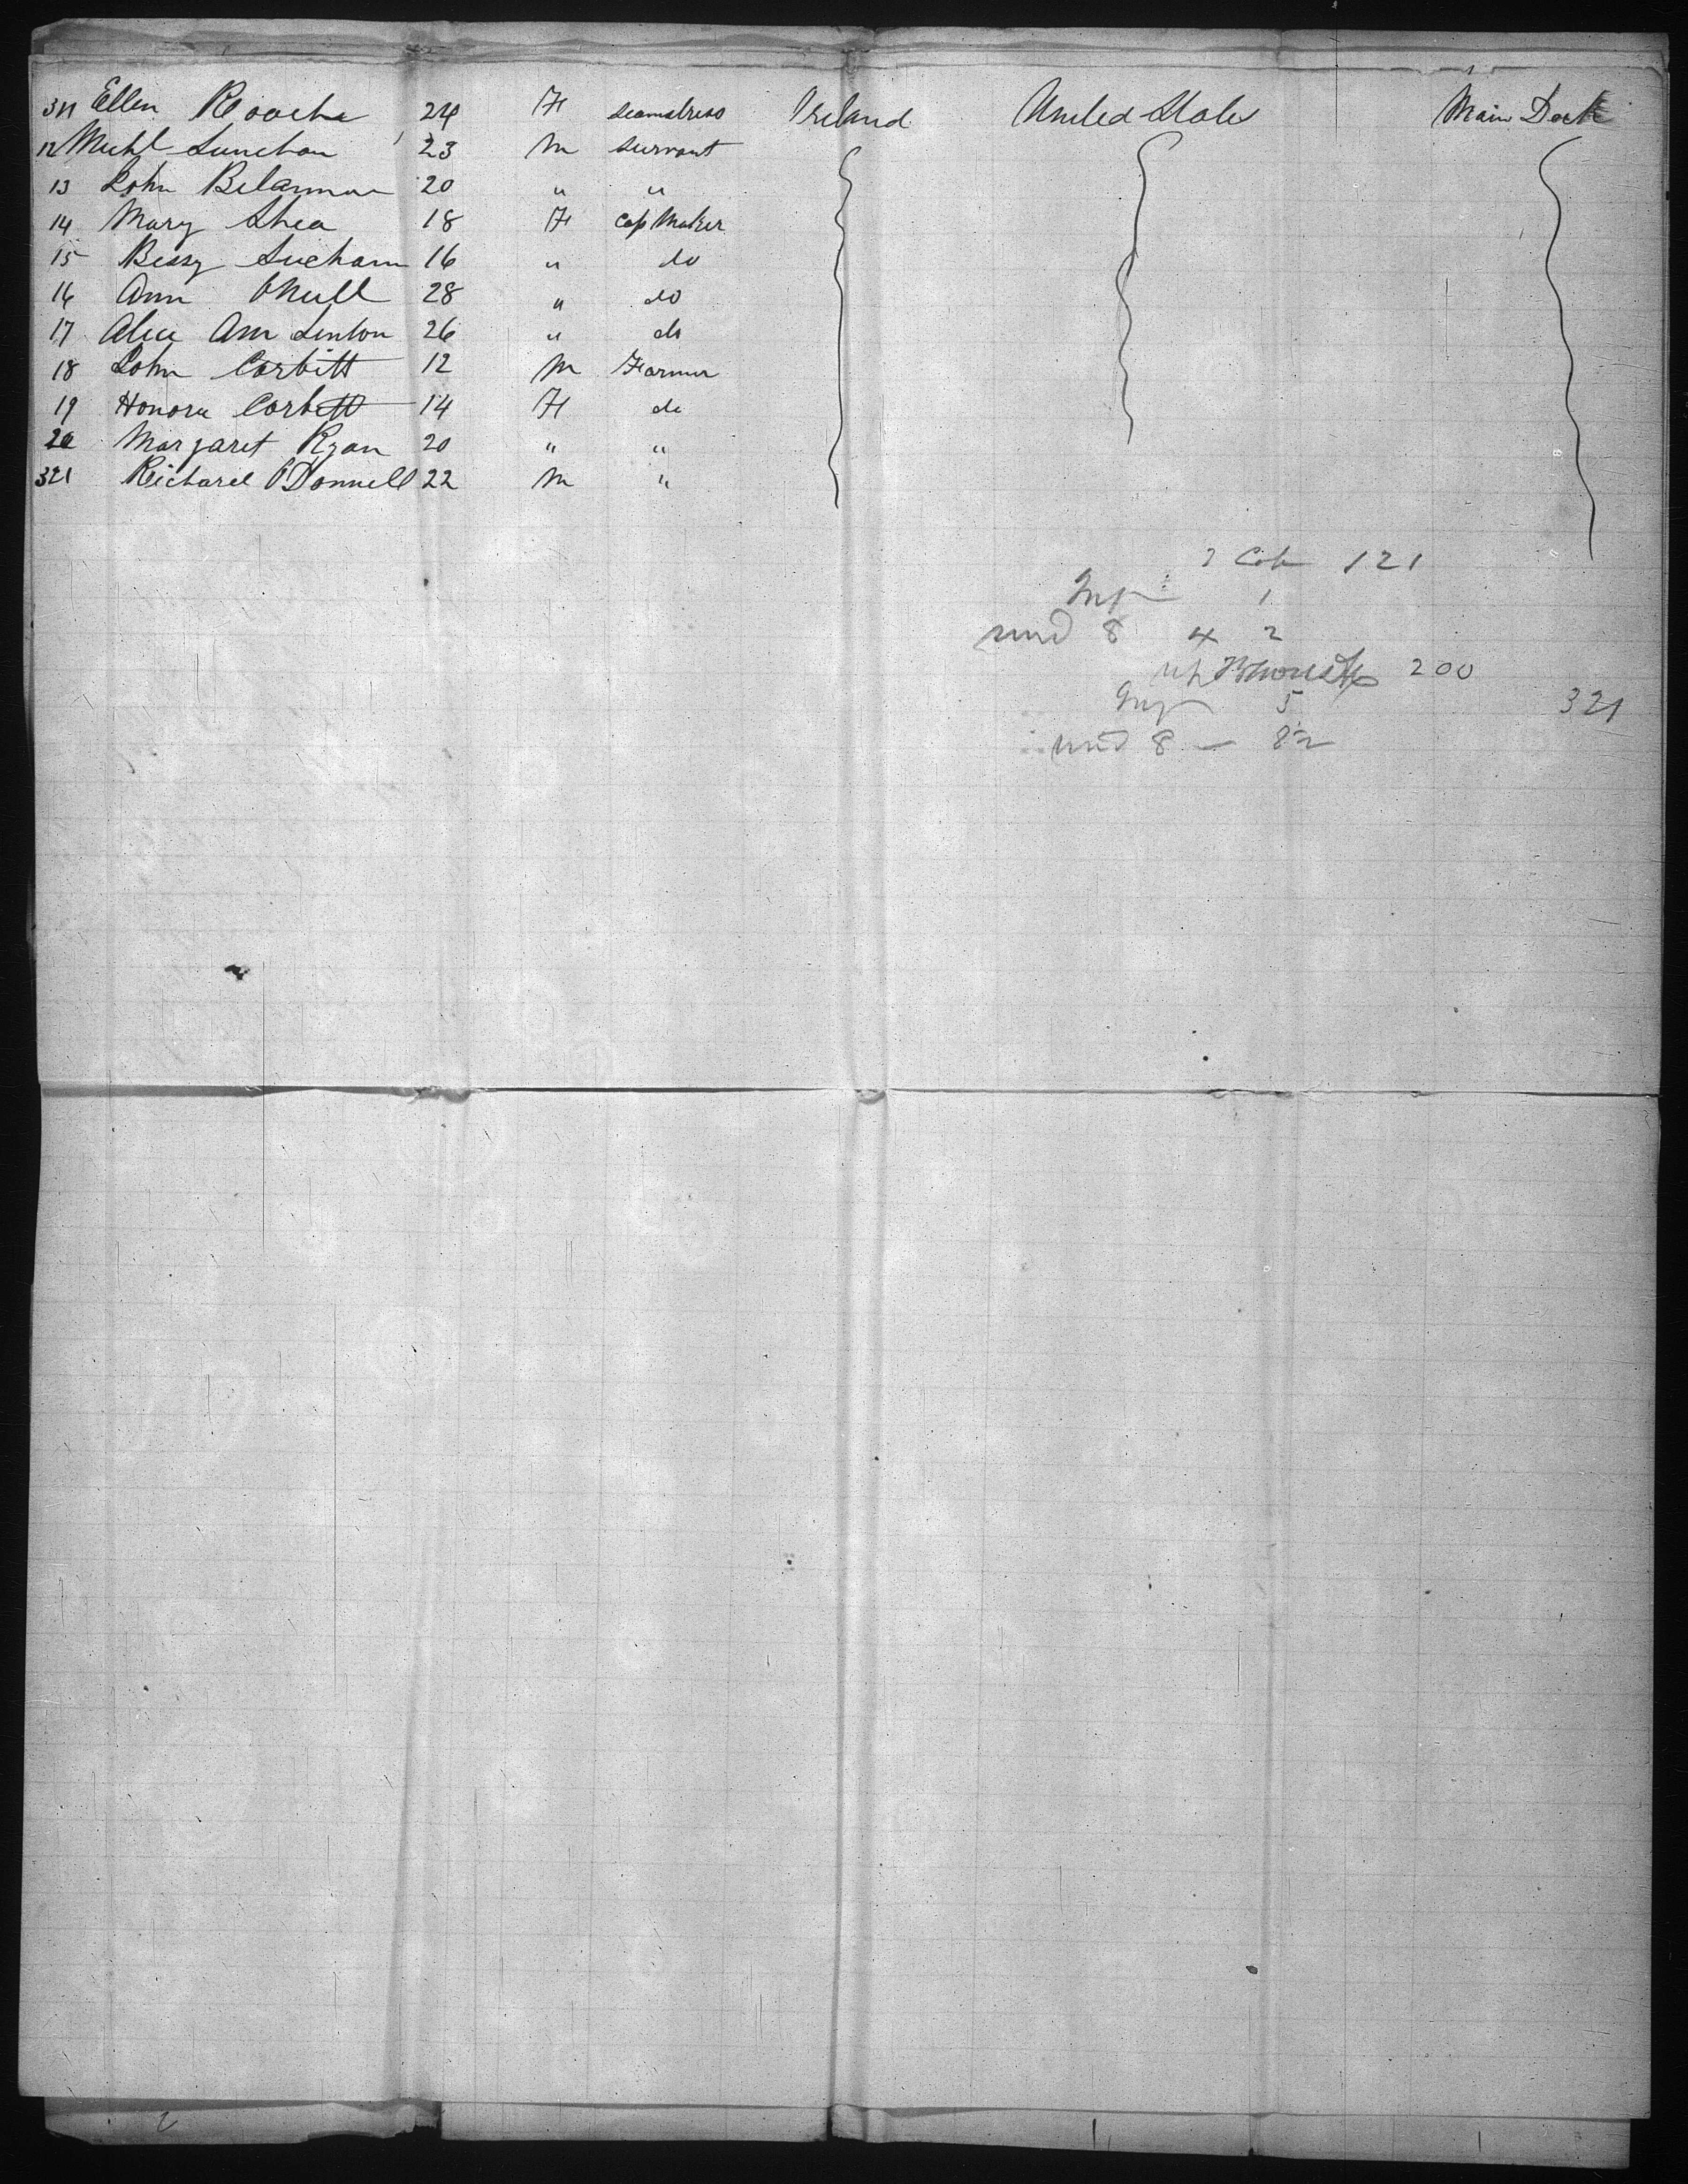 311 Ellen Rooche 24 F seamstress Ireland United States Main Deck
12 Michl Lunchan 23 M servant
13 John Belanman 20 " "
14 Mary Shea 18 F Cap Maker
15 Bessy Sucham 16 " do
16 Ann ONeill 28 " do
17 Alice Ann Linton 26 " do
18 John Corbitt 12 M Farmer
19 Honora Corbett 14 F do
20 Margaret Ryan 20 " "
321 Richard ODonnell 22 M "
2 Cab 121
Inf 1
und 8 4 2
up 200
Inf 5
321
und 8